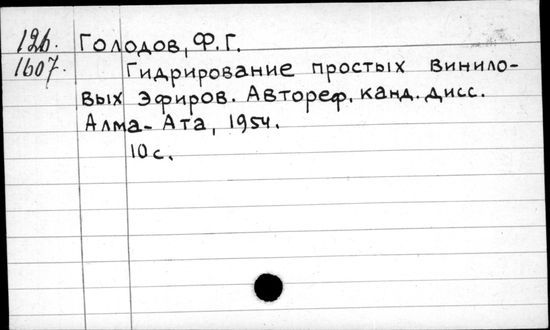 126. Голодов, Ф.Г.
1607. Гидрирование простых винило-
вых эфиров. Автореф. канд. дисс.
Алма-Ата, 1954.
10 с.